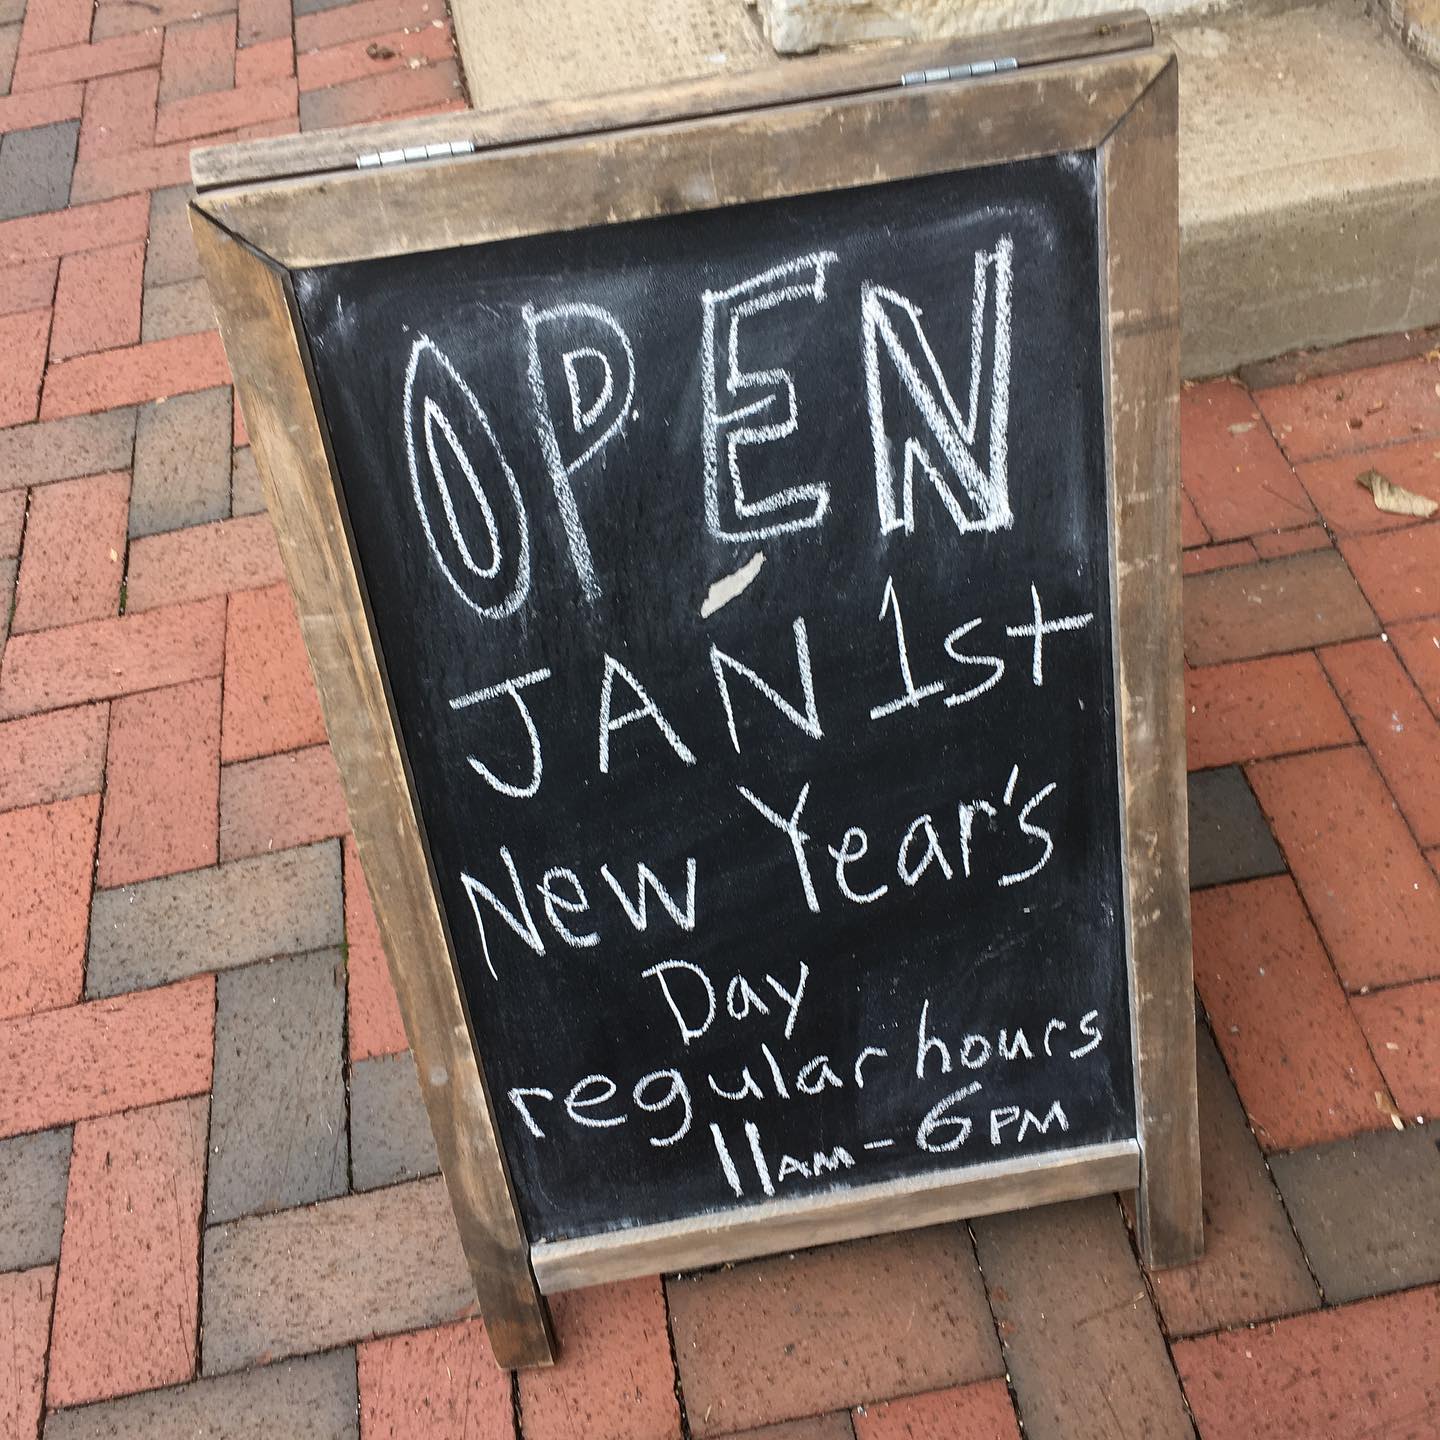 OPEN
JAN 1st
New Year's
Day
regular hours
11AM - 6PM